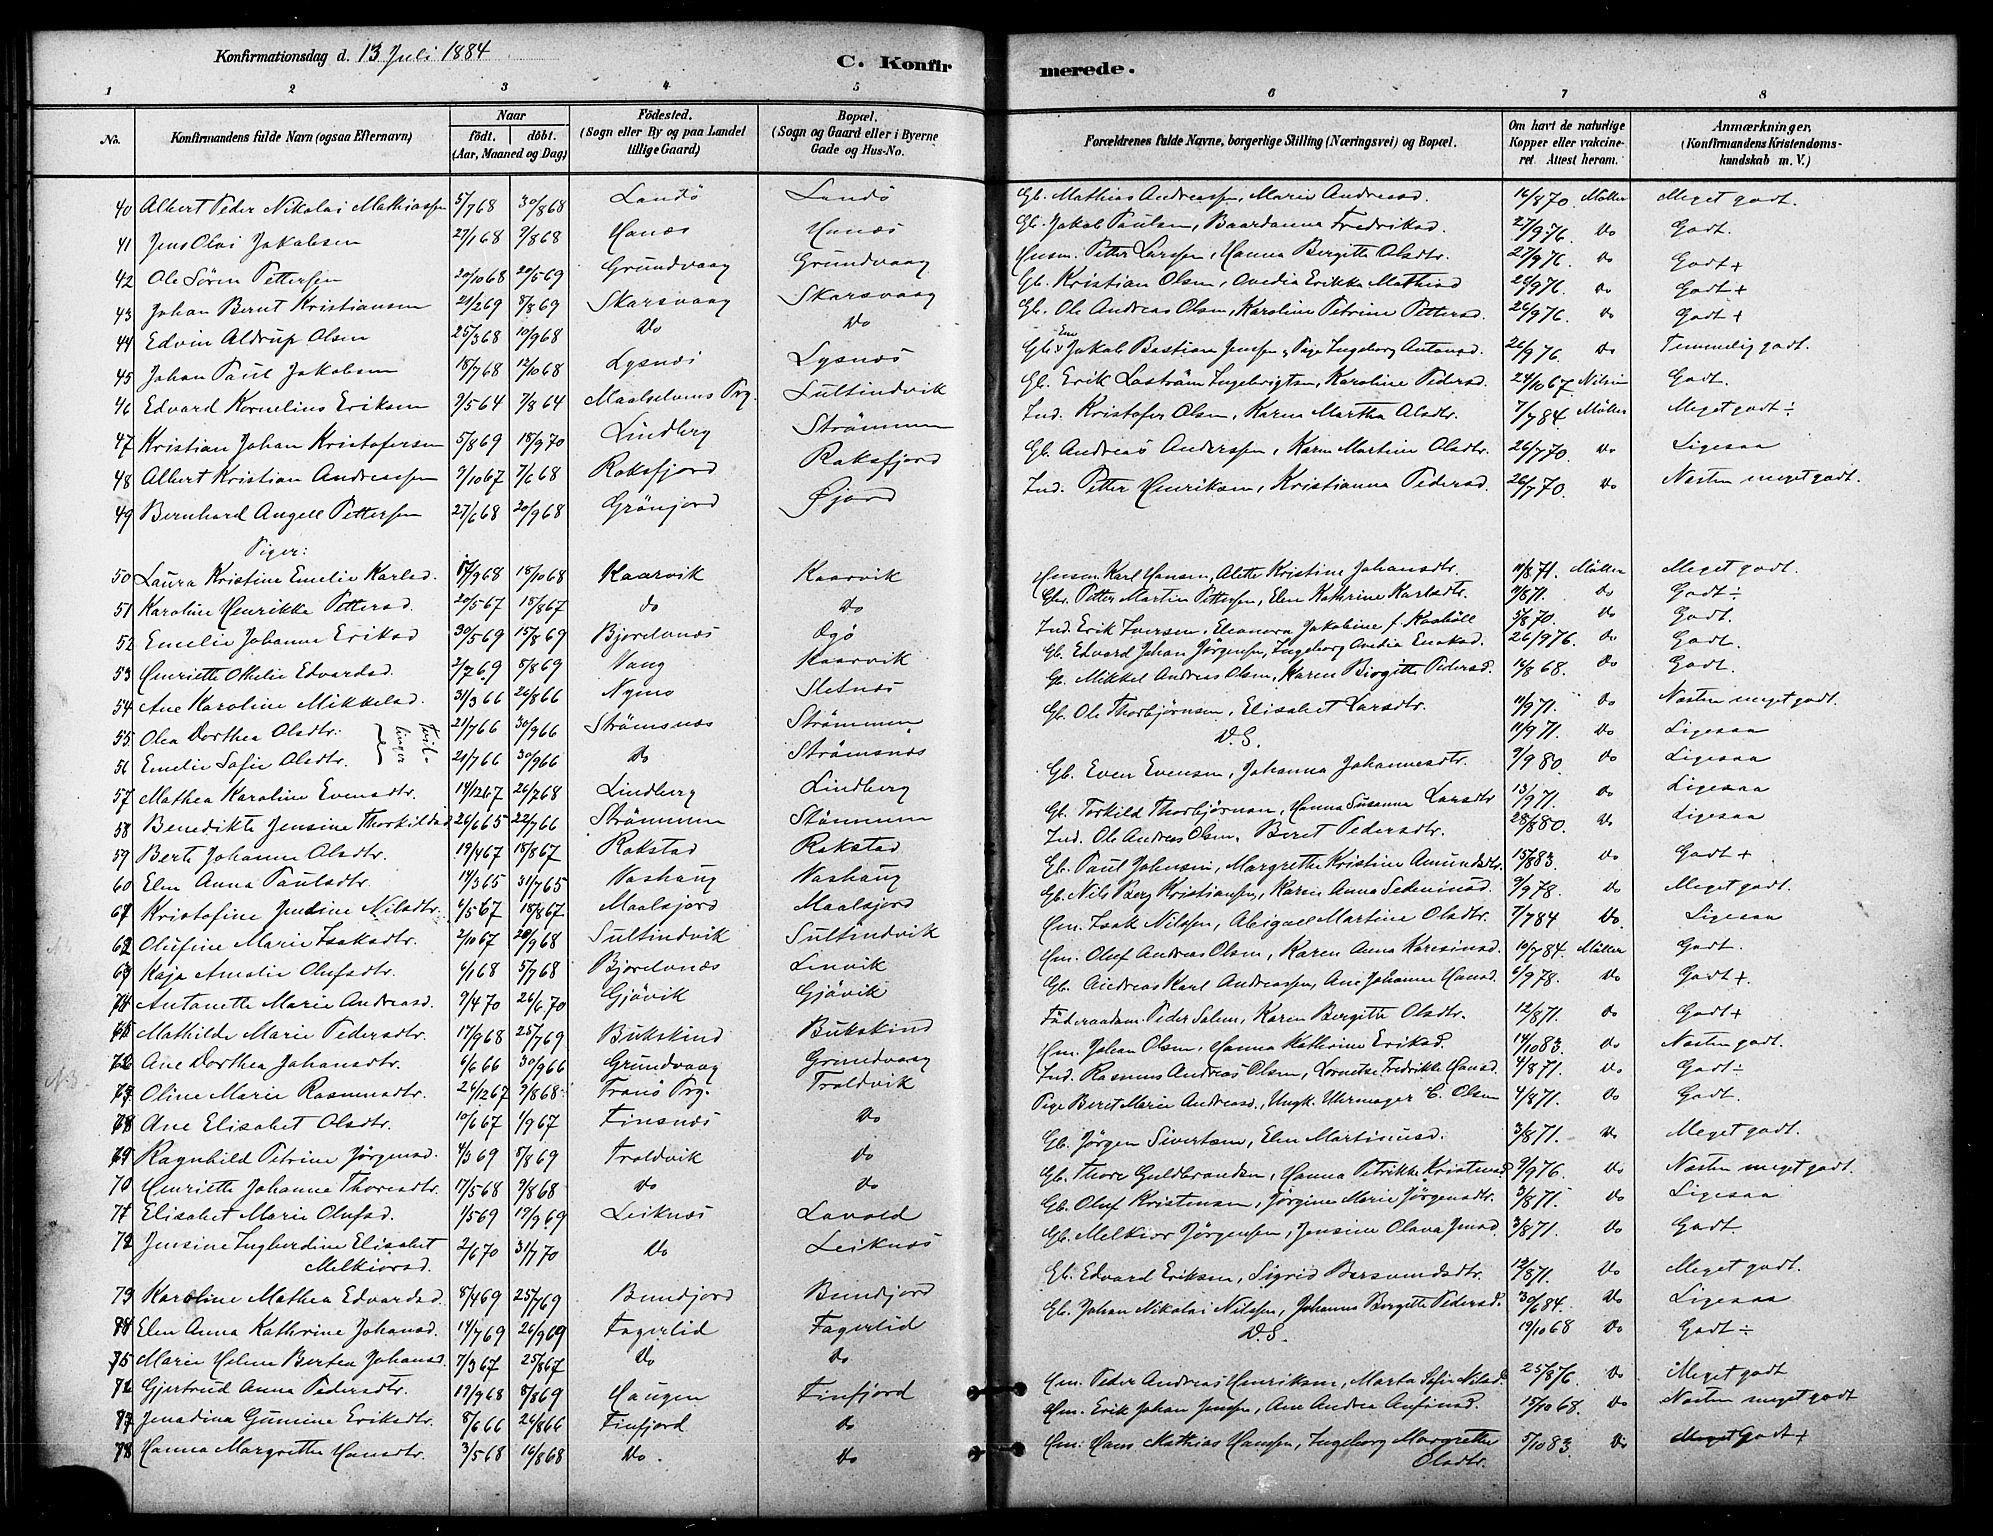 Konfirmationsdag d. 13 Juli 1884
C. Konfirmerede.
1 2 3 4 5 6 7 8
No. Konfirmandens fulde Navn (ogsaa Efternavn) Naar födt. döbt. (Aar, Maaned og Dag) Födested. (Sogn eller By og paa Landet tillige Gaard) Bopæl. (Sogn og Gaard eller i Byerne Gade og Hus-No. Forældrenes fulde Navne, borgerlige Stilling (Næringsvei) og Bopæl. Om havt de naturlige Kopper eller vakcineret. Attest herom. Anmærkninger. (Konfirmandens Kristendomskundskab m. V.)
40 Albert Peder Nikolai Mathiassen 5/768 30/868 Landö Landö Gb. Mathias Andreassen, Marie Andreasd. 16/870 Möller Meget godt.
41 Jens Olai Jakobsen 27/168 9/868 Hanæs Hanæs Gb. Jakob Paulsen, Baardanna Fredriksd. 27/976. Do Godt.
42 Ole Sören Pettersen 20/1068 20/569 Grundvaag Grundvaag Husm. Petter Larssen, Hanna Bergitte Olsdtr. 27/976. Do Godt+
43 Johan Bernt Kristiansen 21/269 8/869 Skarsvaag Skarsvaag Gb. Kristian Olsen, Avedia Erikke Mathiasd 26/976. Do Godt+
44 Edvin Aldrup Olsen 25/368 10/968 Do Do Gb. Ole Andreas Olsen, Karoline Petrine Pettersd. 26/976. Do Godt+
45 Johan Paul Jakobsen 18/768 12/1068 Lysnæs Lysnæs Gb. Jakob Bastian Jenssen, Pige Ingeborg Antonsd. 26/976 Do Temmelig godt.
46 Edvard Kornelius Eriksen 9/564 7/864 Maalselvens Prg. Sultindvik Gb. Erik Laström Ingebrigtsen, Karoline Pedersd. 24/1067 Nilsen Godt.
47 Kristian Johan Kristofersen 5/869 18/970 Lindberg Strömmen Ind. Kristofer Olsen, Karen Martha Olsdtr. 7/784 Möller Meget godt÷
48 Albert Kristian Andreassen 9/1067 7/668 Roksfjord Roksfjord Gb. Andreas Anderssen, Karen Martine Olsdtr. 26/770. Do Ligesaa
49 Bernhard Angell Pettersen 27/668 20/968 Grönjord Øjord Ind. Petter Henriksen, Kristianna Pedersd. 26/770. Do Næsten meget godt.
Piger:
50 Laura Kristine Emelie Karlsd. 17/968 18/1068 Kaarvik Kaarvik Husm. Karl Hansen, Alette Kristine Johansdtr. 11/871. Möller Meget godt.
51 Karoline Henrikke Pettersd. 20/567 18/867 do Do Gbr. Petter Martin Pettersen, Elen Kathrine Karlsdtr. 9/871. Do Godt÷
52 Emelie Johanne Eriksd 30/569 15/869 Bjorelvnæs Ogö Ind. Erik Iversen, Eleanora Jakobine f. Kaaböll 5/870. Do Godt.
53 Henriette Othelie Edvardsd. 2/769 8/869 Vang Kaarvik Gb. Edvard Johan Jörgensen, Ingeborg Avedia Enoksd. 26/976. Do Godt.
54 Ane Karoline Mikkelsd 31/366 26/866 Nymo Sletnæs Gb. Mikkel Andreas Olsen, Karen Birgitte Pedersd. 16/868. Do Godt.
55 Olea Dorthea Olsdtr. Tvillinger 21/766 30/966 Strömsnæs Strömmen Gb. Ole Thorbjörnsen, Elisabet Larsdtr. 11/971. Do Næsten meget godt.
56 Emelie Sofie Olsdtr. 21/766 30/966 Do Strömsnæs D.S. 11/971. Do Ligesaa
57 Mathea Karoline Evensdtr. 14/1267 26/768 Lindberg Lindberg Gb. Even Evensen, Johanna Johannesdtr. 9/980. Do Ligesaa
58 Benedikte Jensine Thorkildsd 26/665 22/766 Strömmen Strömmen Gb. Torkild Thorbjörnsen, Hanna Susanna Larsdtr 13/971. Do Ligesaa
59 Berte Johanne Olsdtr. 19/467 18/867 Rokstad Rokstad Ind. Ole Andreas Olsen, Beret Pedersdtr. 28/880. Do Ligesaa
60 Elen Anna Paulsdtr. 14/365 31/765 Vashaug Vashaug Gb. Paul Johnsen, Margrethe Kristine Amundsdtr. 15/883. Do Godt+
61 Kristofine Jensine Nilsdtr. 6/567 18/867 Maalsjord Maalsjord Gb. Nils Berg Kristianssen, Karen Anna Sedeninsd. 9/978. Do Meget godt.
62 Olufine Marie Isaksdtr. 2/1067 20/968 Sultindvik Sultindvik Hm. Isak Nilssen, Abigael Martine Olsdtr. 7/784 Do. Ligesaa
63 Kaja Amalie Olufsdtr. 6/168 5/768 Bjorelvnæs Lenvik Hm. Oluf Andreas Olsen, Karen Anna Karesinsd. 10/784. Möller Godt.
64 Antonette Marie Andreasd. 9/470 26/670 Gjövik Gjövik Gb. Andreas Karl Andreassen, Ane Johanne Hansd. 6/978. Do Godt+.
65 Mathilde Marie Pedersdtr. 17/968 25/769 Bukskind Bukskind Föderaadsm. Peder Salem, Karen Bergitte Olsdtr. 12/871. Do Godt+
66 Ane Dorthea Johansdtr. 6/666 30/966 Grundvaag Grundvaag Hm. Johan Olsen, Hanna Kathrine Eriksd. 14/1083. Do Næsten godt.
67 Oline Marie Rasmusdtr. 26/1267 9/868 Tranö Prg. Troldvik Ind. Rasmus Andreas Olsen, Lornetse Fredrikke Hansd. 4/871. Do Godt÷
68 Ane Elisabet Olsdtr. 10/667 1/967 Finsnæs Do Pige Beret Marie Andreasd., Ungk. Uhrmager C. Olsen 4/871. Do Godt.
69 Ragnhild Petrine Jörgensd. 4/369 8/869 Troldvik Do Gb. Jörgen Sivertsen, Elen Martinusd. 3/871. Do Meget godt.
70 Henriette Johanne Thoresdtr. 17/568 9/868 Do Do Gb. Thore Guldbrandsen, Hanna Petrikke Kristensd 9/976 Do Næsten meget godt.
71 Elisabet Marie Olufsd. 1/569 19/969 Leiknæs Lavold Gb. Oluf Kristensen, Jörgine Marie Jörgensdtr. 3/871. Do Ligesaa
72 Jensine Ingberdine Elisabet Melkiorsd. 2/670 31/770 Do Leiknæs Gb. Melkior Jörgensen, Jensine Olava Jensd 3/871. Do Godt
73 Karoline Mathea Edvardsd. 8/469 25/769 Bundjord Bundjord Gb. Edvard Eriksen, Sigrid Bersvendsdtr. 12/871. Do Meget godt.
74 Elen Anna Kathrine Johansd. 14/769 26/969 Fagerlid Fagerlid Gb. Johan Nikolai Nilssen, Johanne Bergitte Pedersd. 30/684. Do Ligesaa
75 Marie Helene Bertea Johansd 7/367 25/867 Do Do D.S. 19/1068 Do Godt÷
76 Gjertrud Anna Pedersdtr. 19/968 8/869 Haugen Finfjord Hm. Peder Andreas Henriksen, Marta Sofie Nilsd. 25/876. Do Meget godt
77 Jensdina Gunnine Eriksdtr. 8/666 26/866 Finfjord do Hm. Erik Johan Jenssen, Ane Andrea Anfinsd. 15/1068. Do Næsten meget godt
78 Hanna Margrethe Hansdtr. 3/568 16/868 Do. Do Hm. Hans Mathias Hanssen, Ingeborg Margrethe Olsdtr. 5/1083. Do Meget Godt+